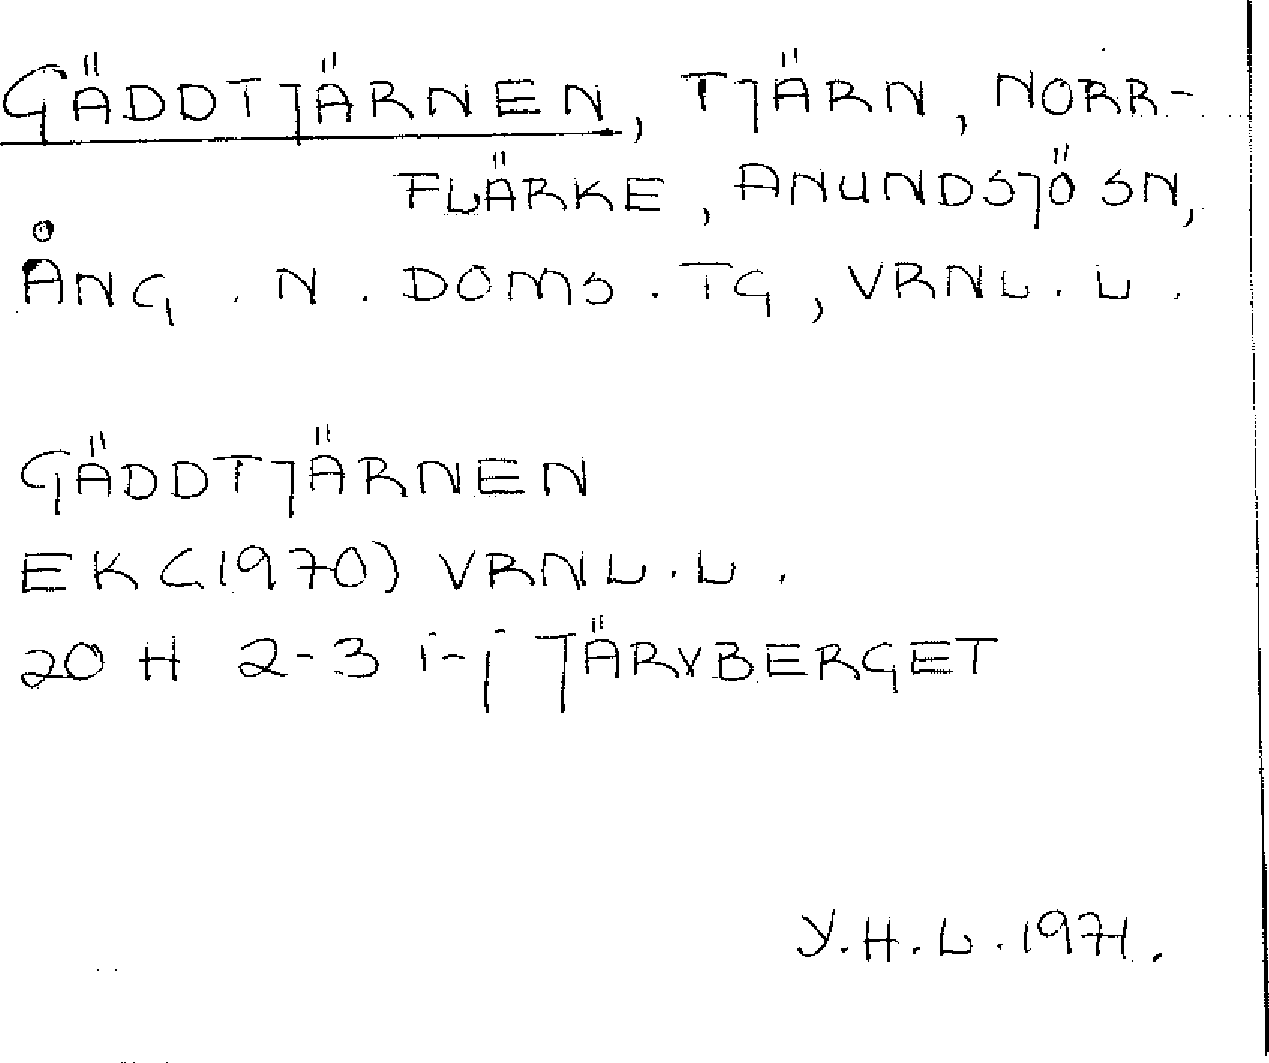 GÄDDTJÄRNEN, TJÄRN, NORR-
FLÄRKE, ANUNDSJÖ SN,
ÅNG. N. DOMS. TG, VRNL. L.
GÄDDTJÄRNEN
EK (1970) VRNL. L.
20 H 2-3 i-j JÄRVBERGET
Y. H. L. 1971.